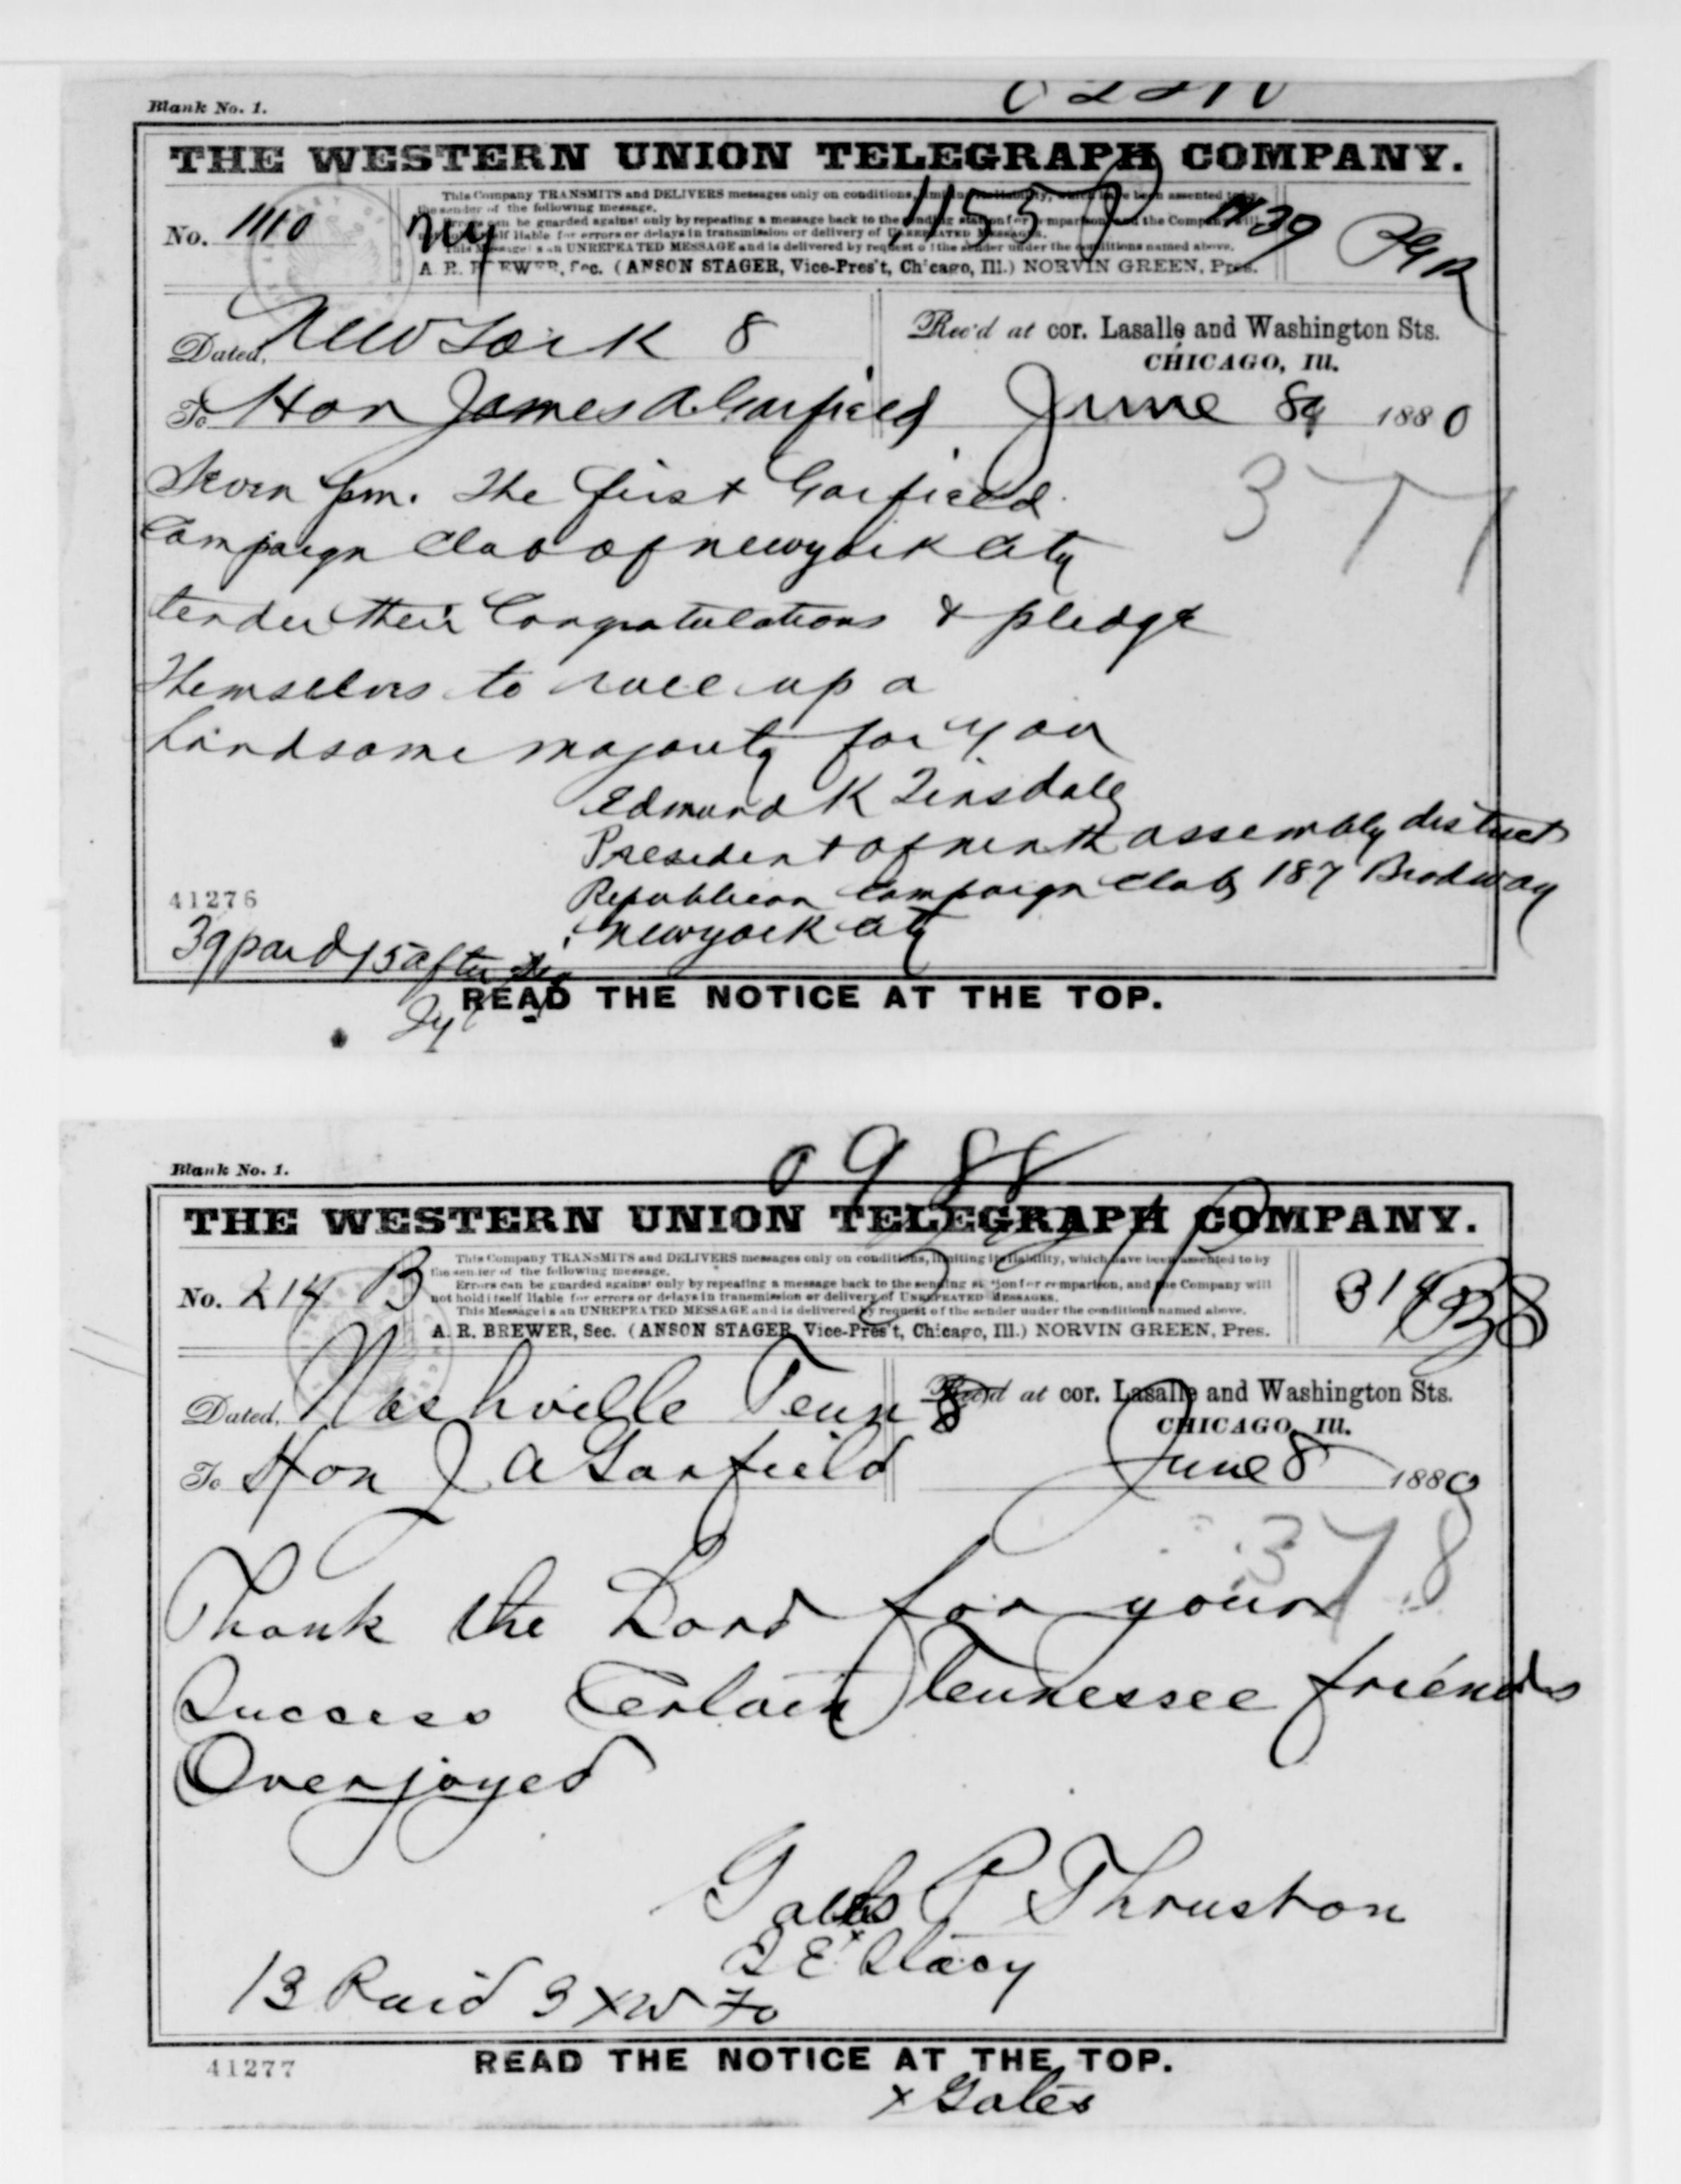 Blank No. 1.
THE WESTERN UNION TELEGRAPH COMPANY.
This Company TRANSMITS and DELIVERS messages only on conditions, limiting its liability, which have been assented to by
the sender of the following message.
Errors can be guarded against only by repeating a message back to the sending station for comparison, and the Company will
not hold itself liable for errors or delays in transmission or delivery of UNREPEATED MESSAGES.
This Message is an UNREPEATED MESSAGE and is delivered by request of the sender under the conditions named above.
A. R. BREWER, Sec. (ANSON STAGER, Vice-Pres't, Chicago, Ill.) NORVIN GREEN, Pres.
No. 1110 ny 39
Dated, New York 8
Rec'd at cor. Lasalle and Washington Sts.
CHICAGO, Ill.
To Hon James A. Garfield June 8 1880
377
Seven pm. The first Garfield
Campaign Club of newyork City
tender their Congratulations & pledge
themselves to roll up a
handsome majority for you
Edmund K Linsdale
President of ninth assembly district
Republican Campaign Club, 187 Brodway
newyork City
41276
39 paid
READ THE NOTICE AT THE TOP.
0988
Blank No. 1.
THE WESTERN UNION TELEGRAPH COMPANY.
This Company TRANSMITS and DELIVERS messages only on conditions, limiting its liability, which have been assented to by
the sender of the following message.
Errors can be guarded against only by repeating a message back to the sending station for comparison, and the Company will
not hold itself liable for errors or delays in transmission or delivery of UNREPEATED MESSAGES.
This Message is an UNREPEATED MESSAGE and is delivered by request of the sender under the conditions named above.
A. R. BREWER, Sec. (ANSON STAGER, Vice-Pres't, Chicago, Ill.) NORVIN GREEN, Pres.
No. 214 B
Dated, Nashville Tenn 8
Rec'd at cor. Lasalle and Washington Sts.
CHICAGO, Ill.
To Hon J A Garfield June 8 1880
378
Thank the Lord for your
Success Certain Tennessee friends
Overjoyed
Gates P Thruston
Stacy
13 Paid
READ THE NOTICE AT THE TOP.
41277
x Gates